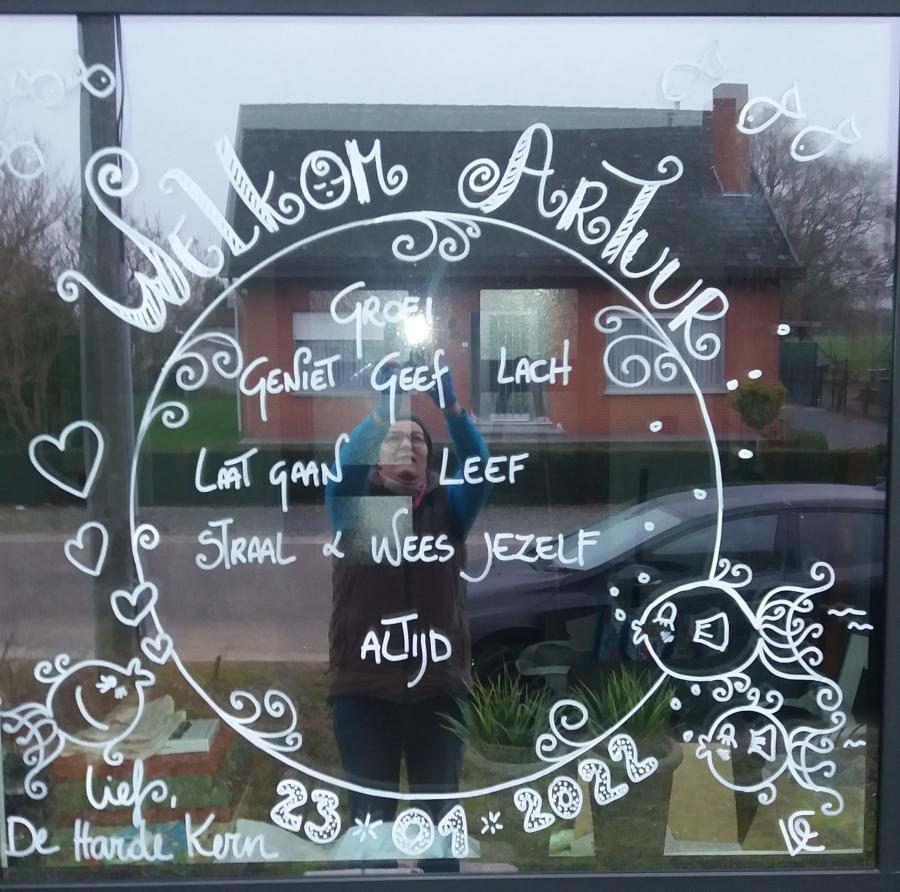 WELKOM ARTUUR
GROEI
GENIET GEEF LACH
LAAT GAAN LEEF
STRAAL & WEES JEZELF
ALTIJD
23 * 01 * 2022
Liefs,
De Harde Kern